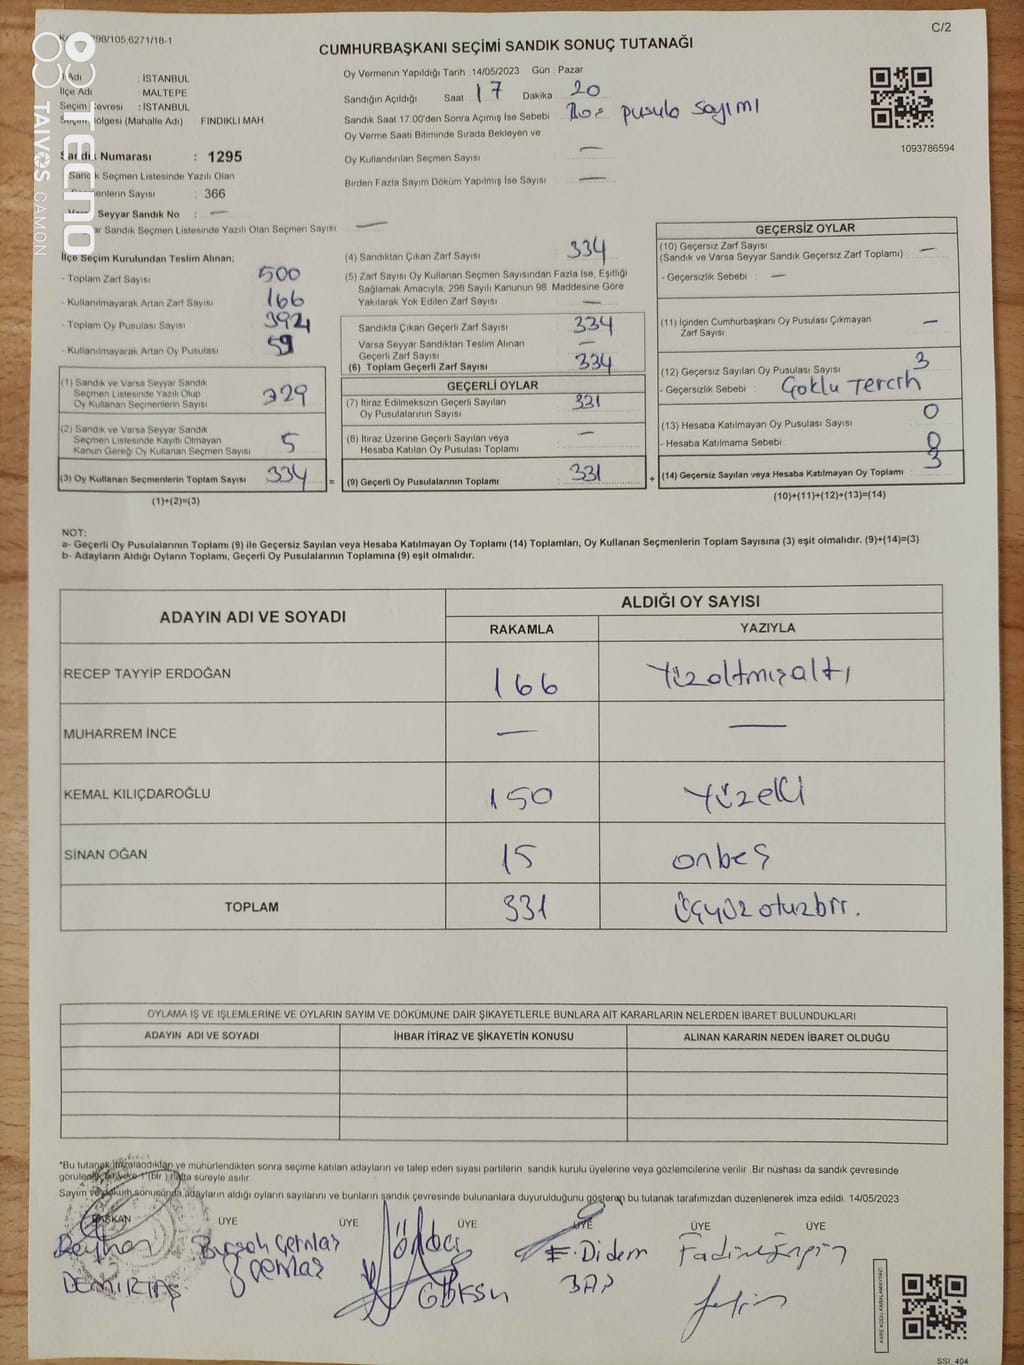 C/2
98/105,6271/18-1
CUMHURBAŞKANI SEÇİMİ SANDIK SONUÇ TUTANAĞI
TECNO
TAIVOS CAMON
Adı : İSTANBUL
İlçe Adı MALTEPE
Seçim Çevresi : İSTANBUL
Seçim Bölgesi (Mahalle Adı) FINDIKLI MAH.
Sandık Numarası : 1295
Sandık Seçmen Listesinde Yazılı Olan
Seçmenlerin Sayısı : 366
Varsa Seyyar Sandık No : —
Seyyar Sandık Seçmen Listesinde Yazılı Olan Seçmen Sayısı —
Oy Vermenin Yapıldığı Tarih : 14/05/2023 Gün : Pazar
Sandığın Açıldığı Saat 17 Dakika 20
Sandık Saat 17.00'den Sonra Açımış İse Sebebi pusula sayımı
Oy Verme Saati Bitiminde Sırada Bekleyen ve
Oy Kullandırılan Seçmen Sayısı —
Birden Fazla Sayım Döküm Yapılmış İse Sayısı —
1093786594
İlçe Seçim Kurulundan Teslim Alınan;
- Toplam Zarf Sayısı 500
- Kullanılmayarak Artan Zarf Sayısı 166
- Toplam Oy Pusulası Sayısı
- Kullanılmayarak Artan Oy Pusulası 59
(1) Sandık ve Varsa Seyyar Sandık
Seçmen Listesinde Yazılı Olup
Oy Kullanan Seçmenlerin Sayısı 329
(2) Sandık ve Varsa Seyyar Sandık
Seçmen Listesinde Kayıtlı Olmayan
Kanun Gereği Oy Kullanan Seçmen Sayısı 5
(3) Oy Kullanan Seçmenlerin Toplam Sayısı 334 =
(1)+(2)=(3)
(4) Sandıktan Çıkan Zarf Sayısı 334
(5) Zarf Sayısı Oy Kullanan Seçmen Sayısından Fazla İse, Eşitliği
Sağlamak Amacıyla; 298 Sayılı Kanunun 98. Maddesine Göre
Yakılarak Yok Edilen Zarf Sayısı —
Sandıkta Çıkan Geçerli Zarf Sayısı 334
Varsa Seyyar Sandıktan Teslim Alınan
Geçerli Zarf Sayısı —
(6) Toplam Geçerli Zarf Sayısı 334
GEÇERLİ OYLAR
(7) İtiraz Edilmeksizin Geçerli Sayılan
Oy Pusulalarının Sayısı 331
(8) İtiraz Üzerine Geçerli Sayılan veya
Hesaba Katılan Oy Pusulası Toplamı —
(9) Geçerli Oy Pusulalarının Toplamı 331 +
GEÇERSİZ OYLAR
(10) Geçersiz Zarf Sayısı
(Sandık ve Varsa Seyyar Sandık Geçersiz Zarf Toplamı) —
- Geçersizlik Sebebi : —
(11) İçinden Cumhurbaşkanı Oy Pusulası Çıkmayan
Zarf Sayısı —
(12) Geçersiz Sayılan Oy Pusulası Sayısı 3
- Geçersizlik Sebebi : Çoklu Tercih
(13) Hesaba Katılmayan Oy Pusulası Sayısı 0
- Hesaba Katılmama Sebebi : 0
(14) Geçersiz Sayılan veya Hesaba Katılmayan Oy Toplamı : 3
(10)+(11)+(12)+(13)=(14)
NOT:
a- Geçerli Oy Pusulalarının Toplamı (9) ile Geçersiz Sayılan veya Hesaba Katılmayan Oy Toplamı (14) Toplamları, Oy Kullanan Seçmenlerin Toplam Sayısına (3) eşit olmalıdır. (9)+(14)=(3)
b- Adayların Aldığı Oyların Toplamı, Geçerli Oy Pusulalarının Toplamına (9) eşit olmalıdır.
ADAYIN ADI VE SOYADI ALDIĞI OY SAYISI
RAKAMLA YAZIYLA
RECEP TAYYİP ERDOĞAN 166 Yüzaltmışaltı
MUHARREM İNCE — —
KEMAL KILIÇDAROĞLU 150 Yüzelli
SİNAN OĞAN 15 onbeş
TOPLAM 331 üçyüzotuzbir.
OYLAMA İŞ VE İŞLEMLERİNE VE OYLARIN SAYIM VE DÖKÜMÜNE DAİR ŞİKAYETLERLE BUNLARA AİT KARARLARIN NELERDEN İBARET BULUNDUKLARI
ADAYIN ADI VE SOYADI İHBAR İTİRAZ VE ŞİKAYETİN KONUSU ALINAN KARARIN NEDEN İBARET OLDUĞU
*Bu tutanak imzalandıktan ve mühürlendikten sonra seçime katılan adayların ve talep eden siyasi partilerin sandık kurulu üyelerine veya gözlemcilerine verilir. Bir nüshası da sandık çevresinde
görülen bir yere 1 (bir) hafta süreyle asılır.
Sayım ve döküm sonucunda adayların aldığı oyların sayılarını ve bunların sandık çevresinde bulunanlara duyurulduğunu gösteren bu tutanak tarafımızdan düzenlenerek imza edildi. 14/05/2023
BAŞKAN ÜYE ÜYE ÜYE ÜYE ÜYE ÜYE
Reyhan DEMİRTAŞ
GÖKSU
E. Didem
KARE KODU KARALAMAYINIZ!
SSI_404